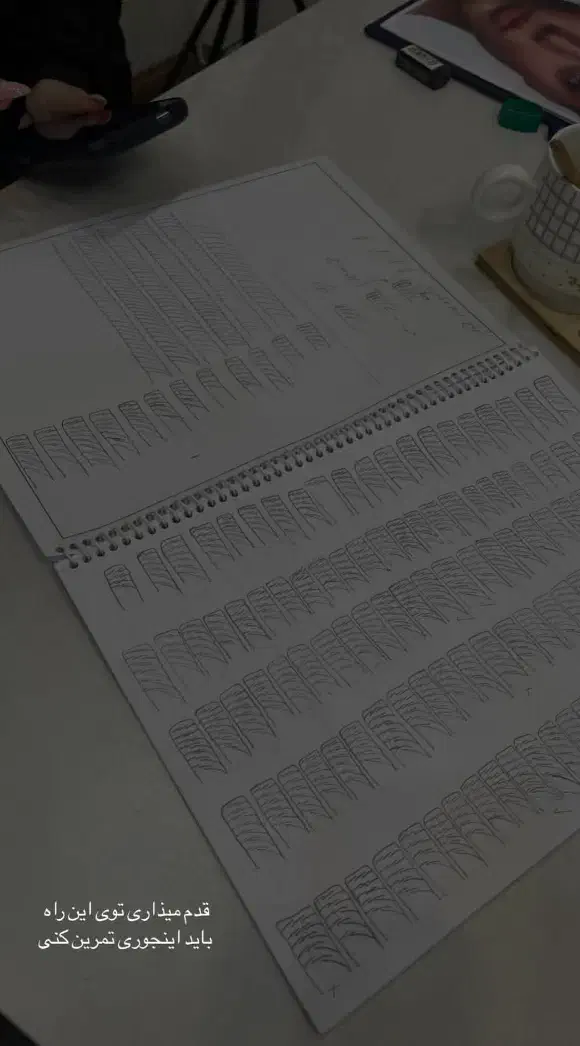 قدم میذاری توی این راه
باید اینجوری تمرین کنی